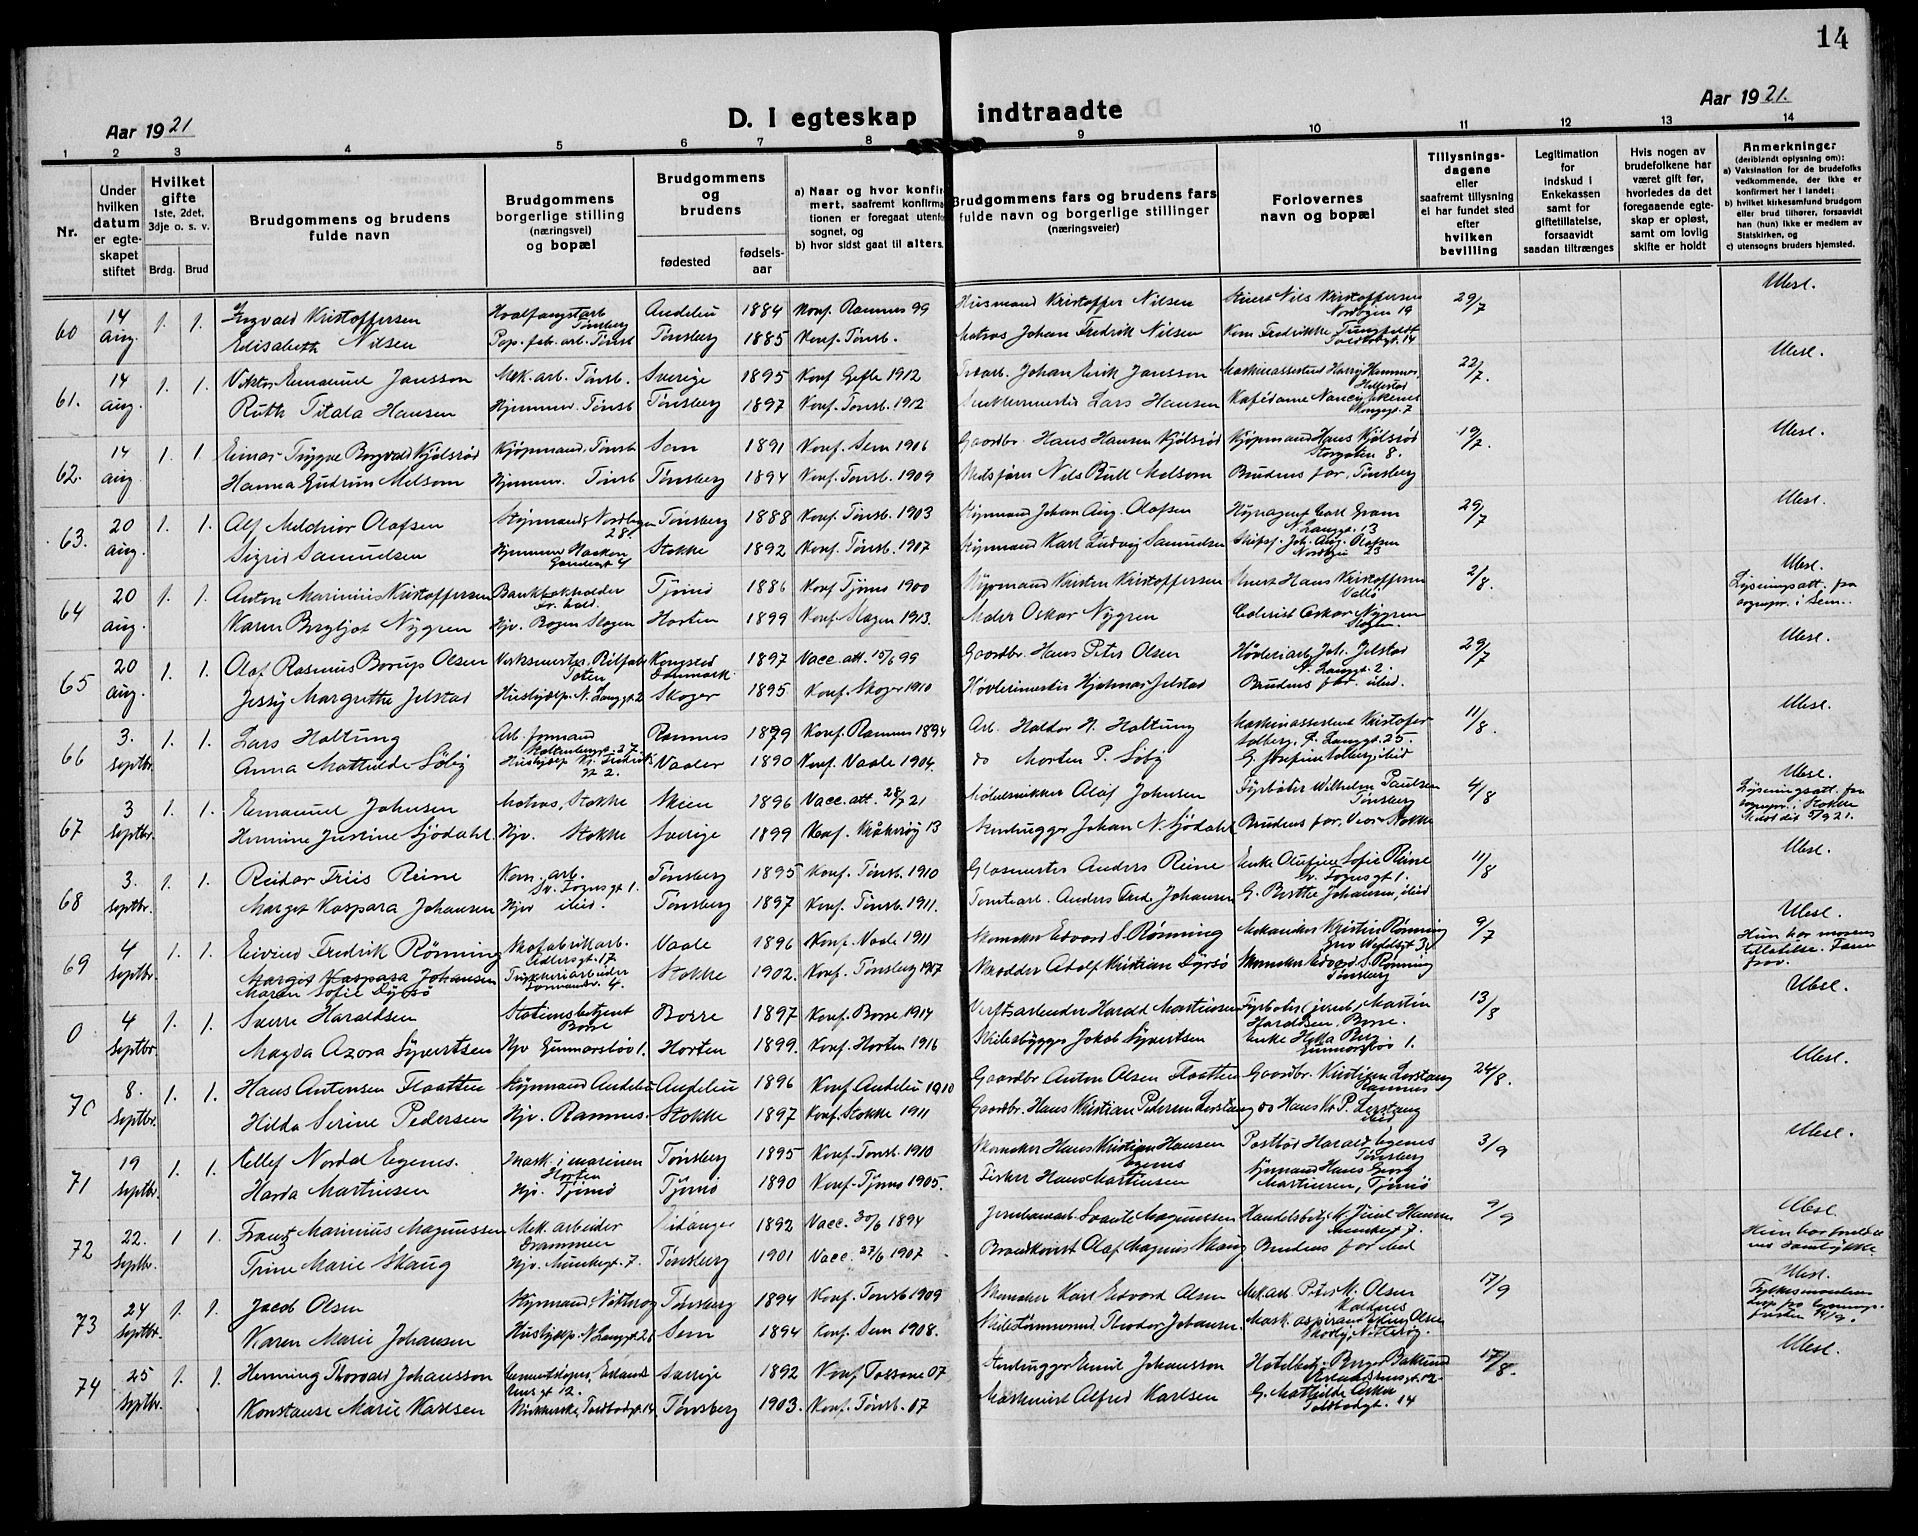 14
Aar 1921
D. I egteskap indtraadte
Aar 1921.
1 2 3 4 5 6 7 8 9 10 11 12 13 14
Nr.
Under hvilken datum er egteskapet stiftet
Hvilket gifte
1ste, 2det, 3dje o. s. v.
Brdg. Brud
Brudgommens og brudens fulde navn
Brudgommens borgerlige stilling (næringsvei) og bopæl
Brudgommens og brudens
fødested
fødselsaar
a) Naar og hvor konfirmert, saafremt konfirmationen er foregaat utenfor sognet, og
b) hvor sidst gaat til alters.
Brudgommens fars og brudens fars fulde navn og borgerlige stillinger (næringsveier)
Forlovernes navn og bopæl
Tillysningsdagene eller saafremt tillysning ei har fundet sted efter hvilken bevilling
Legitimation for indskud i Enkekassen samt for giftetillatelse, forsaavidt saadan tiltrænges
Hvis nogen av brudefolkene har været gift før, hvorledes da det foregaaende egteskap er opløst, samt om lovlig skifte er holdt
Anmerkninger
(deriblandt oplysning om):
a) Vaksination for de brudefolks vedkommende, der ikke er konfirmert her i landet;
b) hvilket kirkesamfund brudgom eller brud tilhører, forsaavidt han (hun) ikke er medlem av Statskirken, og
c) utensogns bruders hjemsted.
60 14 aug. 1. 1. Ingvald Kristoffersen Hvalfangstarb. Tønsberg Andebu 1884 Konf. Ramnes 99 Husmand Kristoffer Nilsen Nils Kristoffersen Nordbyen 19 29/7 Ubesl.
Elisabeth Nilsen Pap. fab. arb. Tønsb. Tønsberg 1885 Konf. Tønsb. Matros Johan Fredrik Nilsen Fredrikke
61. 14 aug. 1. 1. Viktor Emanuel Jansson Mek. arb. Tønsb. Sverige 1895 Konf Gefle 1912 Johan Erik Jansson Maskinassistent Harry Hammer, 22/7. Ubesl.
Ruth Titala Hansen Hjemmev. Tønsb Tønsberg 1897 Konf. Tønsb. 1912 Lars Hansen Kafédame Nancy
62. 14 aug. 1. 1 Einar Trygve Borgvald Kjølsrød Kjøpmand, Tønsb Sem 1891 Konf Sem 1906 Gaardbr. Hans Hansen Kjølsrød Kjøpmand Hans Kjølsrød Storgaten 8. 19/7. Ubesl.
Hanna Gudrun Melsom Hjemmev. Tønsb Tønsberg 1894 Konf. Tønsb. 1909 Nils Bull Melsom Brudens far, Tønsberg
63. 20 aug. 1. 1. Alf Melchior Olafsen Styrmand, Nordbyen 28. Tønsberg 1888 Konf. Tønsb. 1903 Styrmand Johan Aug. Olafsen Carl Gram N. Langgt. 13 29/7 Ubesl.
Sigrid Samuelsen Hjemmev Haakon Stokke 1892 Konf. Tønsb. 1907 Styrmand Karl Ludvig Samuelsen Joh. Aug. Olafsen Nordbyen 23
64 20 aug. 1. 1. Anton Marinius Kristoffersen Bankbokholder Tjømø 1886 Konf Tjømø 1900 Kristen Kristoffersen Hans Kristoffersen Vallø 2/8. Ubesl. Lysningsatt. fra sognepr. i Sem.
Karen Bergljot Nygren Hjv. Bogen Slagen Horten 1899 Konf. Slagen 1913. Maler Oskar Nygren Oskar Nygren Slagen.
65 20 aug. 1. 1. Olaf Rasmus Borup Olsen Verksmester, Toten Danmark 1897 Vacc. att. 15/6 99 Gaardbr. Hans Peter Olsen Høvleriarb. Joh. Jelstad N. Langgt. 2. 29/7 Ubesl.
Jessy Margrethe Jelstad Hushjælp N. Langgt. 2 Skoger 1895 Konf. Skoger 1910 Høvlerimester Hjalmar Jelstad Brudens far. ibid.
66 3. Septbr. 1. 1. Lars Holtung Arb. formand Ramnes 1879 Konf. Ramnes 1894 Arb. Haldor N. Holtung Maskinassistent Kristofer Solberg, N. Langgt. 25. 11/8. Ubesl.
Anna Mathilde Søby Hushjælp Vaaler 1890 Konf. Vaale 1904. do Morten P. Søby G. Josefine Solberg, ibid
67 3 Septbr. 1. 1. Emanuel Johnsen Matros, Stokke Skien 1896 Vacc. att. 28/7 21 Møbelsnikker Olaf Johnsen Fyrbøter Wilhelm Paulsen Tønsberg 4/8 Ubesl. Lysningsatt. fra sognepr. i Stokke
Hermine Justine Sjødahl Hjv. Stokke Sverige 1899 Konf. Kråkerøy 13 Stenhugger Johan N. Sjødahl Brudens far, Stokke
68 3. Septbr. 1. 1. Reidar Friis Reine Kom. arb. Sv. Foynsgt 1. Tønsberg 1895 Konf. Tønsb. 1910 Glasmester Anders Reine Enke Olufine Sofie Reine Sv. Foynsgt 1. 11/8 Ubesl.
Margot Kaspara Johansen Hjv ibid. Tønsberg 1897 Konf. Tønsb. 1911. Tomtearb. Anders Fred. Johansen G. Berthe Johansen, ibid
69 4 Septbr. 1. 1. Eivind Fredrik Rønning Skofabrikarb. 17 Vaale 1896 Konf. Vaale 1911 Skomaker Edvard S. Rønning Mekaniker Kristian Rønning Grev Wedelsgt 3. 9/7 Ubesl. Hun har morens tillatelse. Faren
Margit Kaspara Johansen
Maren Sofie Dyrsø 4. Stokke 1902. Konf. Tønsberg 1917 Skrædder Adolf Kristian Dyrsø Skomaker Edvard S. Rønning Tønsberg
0 4 Septbr. 1. 1. Sverre Haraldsen Stationsbetjent Borre Borre 1897 Konf. Borre 1914 Verftsarbeider Harald Martinsen Fyrbøter Martin Haraldsen, Borre. 13/8 Ubesl.
Magda Azora Syvertsen Hjv Gunnarsbø 1. Horten 1899. Konf. Horten 1916 Skibsbygger Jakob Syvertsen Enke Helka Gunnarsbø 1.
70 8. Septbr. 1. 1. Hans Antonsen Flaatten Styrmand Andebu Andebu 1896 Konf Andebu 1910 Gaardbr Anton Olsen Flaatten Gaardbr. Kristian Lerstang Ramnes 24/8. Ubesl.
Hilda Serine Pedersen Hjv. Ramnes. Stokke 1897 Konf. Stokke 1911 Gaardbr. Hans Kristian Pedersen Lerstang do Hans Kr P. Lerstang ibid.
71 19 Septbr. 1. 1. Ellef Nordal Egenes. Mask. i marinen Horten Tønsberg 1895 Konf. Tønsb. 1910 Skomaker Hans Kristian Hansen Egenes Postbud Harald Egenes Tønsberg 3/9 Ubesl.
Harda Martinsen Hjv. Tjømø Tjømø 1890 Konf. Tjømø 1905. Fisker Hans Martinsen Styrmand Hans Georg Martinsen, Tjømø
72 22. Septbr. 1 1 Frantz Marinius Magnussen Mek. arbeider Drammen Eidanger 1892 Vacc. 30/6 1894 Jernbanearb. Svante Magnussen Handelsbetj. Hansen Munkegt 7. 9/9 Ubesl. Hun har forældrenes samtykke.
Trine Marie Skaug Hjv. Munkegt. 7. Tønsberg 1901 Vacc. 27/6 1907 Brandkonst. Olaf Magnus Skaug Brudens far ibid
73 24 Septbr. 1. 1. Jacob Olsen Styrmand, Nøtterøy Tønsberg 1894 Konf. Tønsb 1909 Skomaker Karl Edvard Olsen Mek. arb. Peter M. Olsen Kaldnes 17/9 Ubesl.
Karen Marie Johansen Hushjælp. N. Langgt. 26 Sem 1894 Konf. Sem 1908. Skibstømmermd. Theodor Johansen. Mask. aspirant Olsen Nøtterøy.
74 25 Septbr. 1. 1. Henning Thorvald Johansson Cementstøper, 12. Sverige 1892 Konf Tossene 07 Stenhugger Emil Johansson Hotelbetj. Birger Baklund 17/8. Ubesl.
Konstanse Marie Karlsen Toldbodgt. 14 Tønsberg 1903. Konf. Tønsb. 17 Maskinist Alfred Karlsen G. Mathilde Toldbodgt. 14